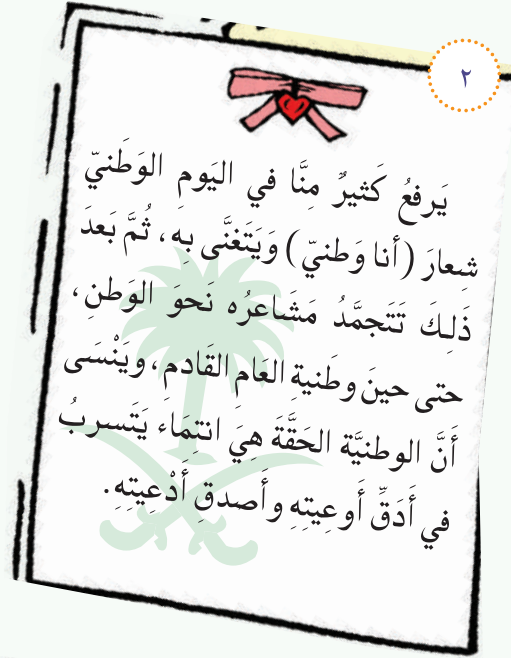 ٢
يَرفعُ كَثيرٌ مِنَّا في اليَومِ الوَطَنيّ
شِعارَ (أنا وَطنيّ) وَيَتَغنَّى بِه، ثُمَّ بَعدَ
ذَلِكَ تَتَجمَّدُ مَشَاعرُه نَحوَ الوَطنِ،
حتى حينَ وطَنيةِ العَامِ القَادمِ، ويَنْسَى
أَنَّ الوطنيَّة الحَقَّةَ هِيَ انتِمَاء يَتَسربُ
في أَدَقِّ أَوعِيتِهِ وأَصدقِ أَدْعِيتِهِ.